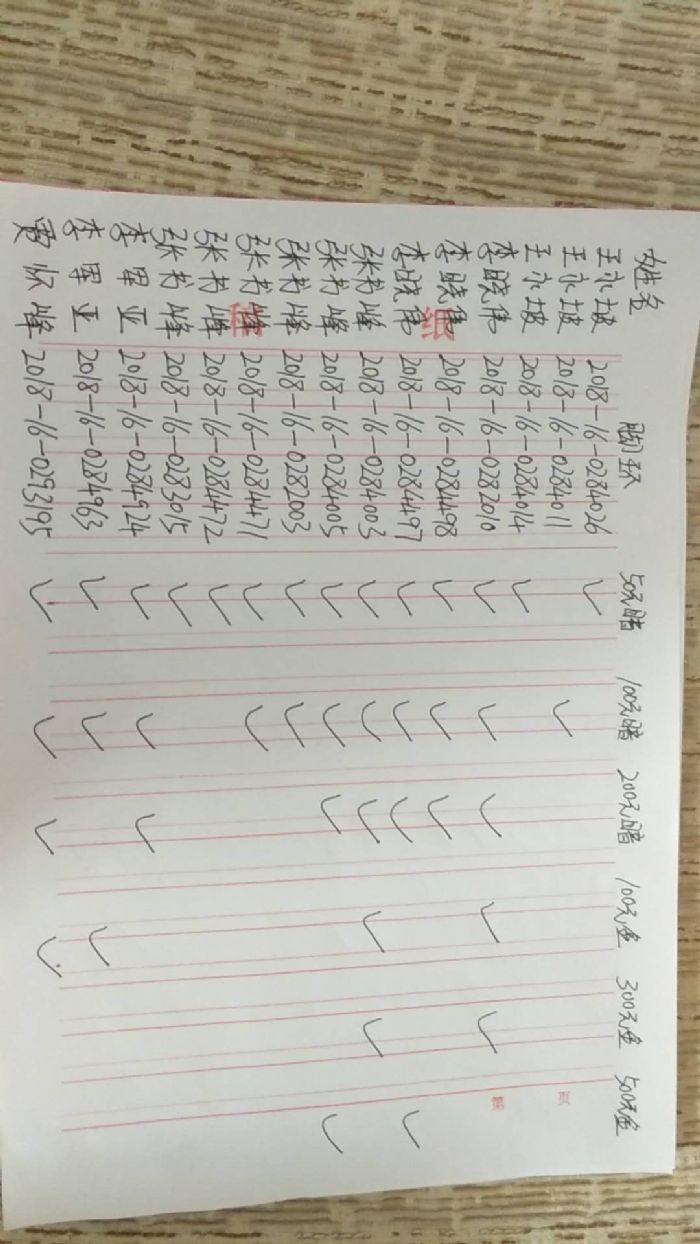 姓名 脚环 50元暗 100元暗 200元暗 100元 300元 500元
王永坡 2018-16-0284026 ✓
王永坡 2018-16-0284011 ✓
王永坡 2018-16-0284014 ✓
李晓伟 2018-16-0282010 ✓ ✓ ✓ ✓ ✓
李晓伟 2018-16-0284498 ✓ ✓ ✓
李晓伟 2018-16-0284497 ✓ ✓ ✓ ✓
张书峰 2018-16-0284003 ✓ ✓ ✓ ✓ ✓
张书峰 2018-16-0284005 ✓ ✓ ✓ ✓
张书峰 2018-16-0282003 ✓ ✓
张书峰 2018-16-0284471 ✓ ✓
张书峰 2018-16-0284472 ✓
张书峰 2018-16-0283015 ✓
李军亚 2018-16-0284924 ✓ ✓ ✓
李军亚 2018-16-0284963 ✓ ✓ ✓
峰 2018-16-0293195 ✓ ✓ ✓ ✓
稿纸
第 页